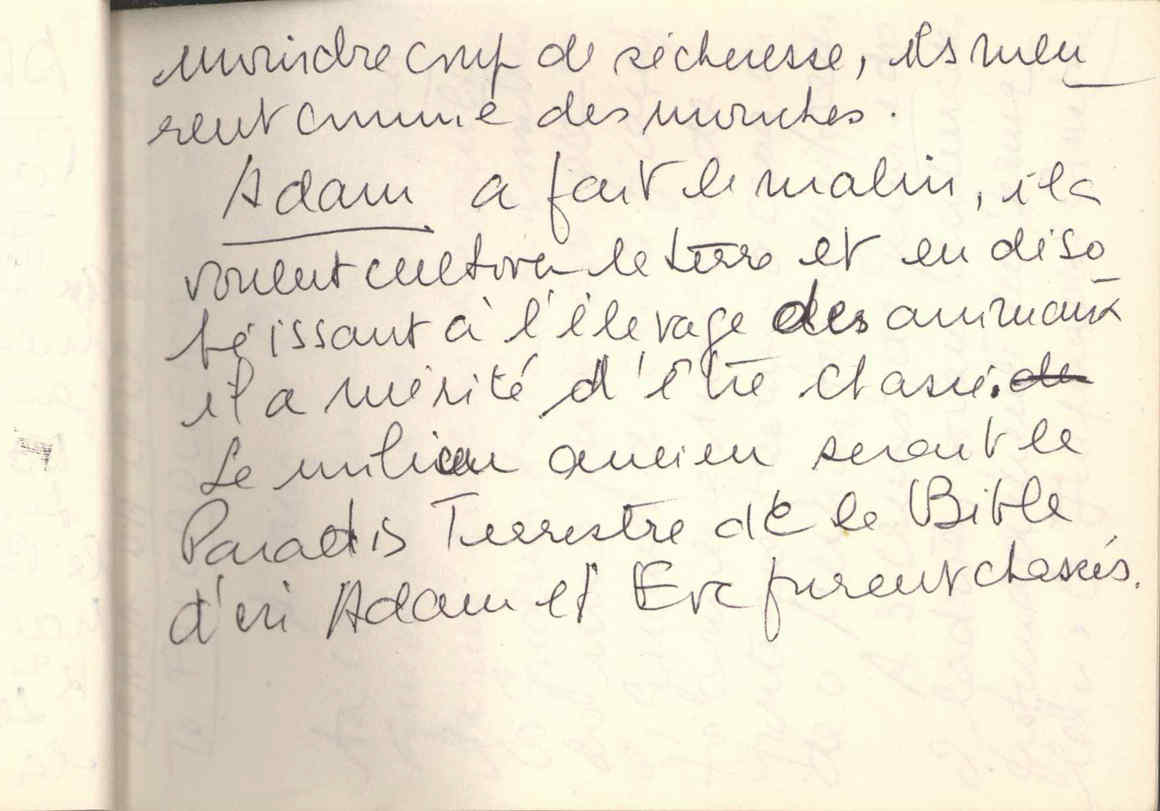 moindre coup de sécheresse, ils meu
rent comme des mouches.
Adam a fait le malin, il a
voulut cultiver la terre et en déso
béissant à l'élevage des animaux
il a mérité d'être chassé. de
Le milieu ancien serait le
Paradis Terrestre de la Bible
d'où Adam et Eve furent chassés.